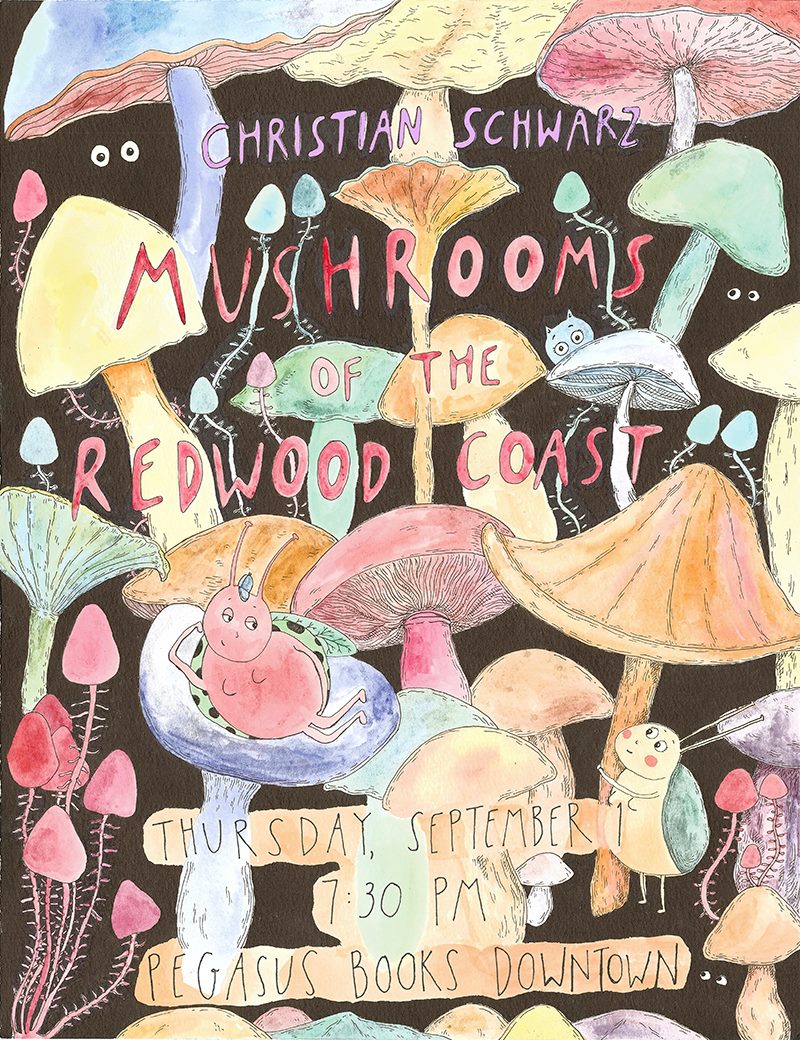 CHRISTIAN SCHWARZ
MUSHROOMS
OF THE
REDWOOD COAST
THURSDAY, SEPTEMBER 1
7:30 PM
PEGASUS BOOKS DOWNTOWN